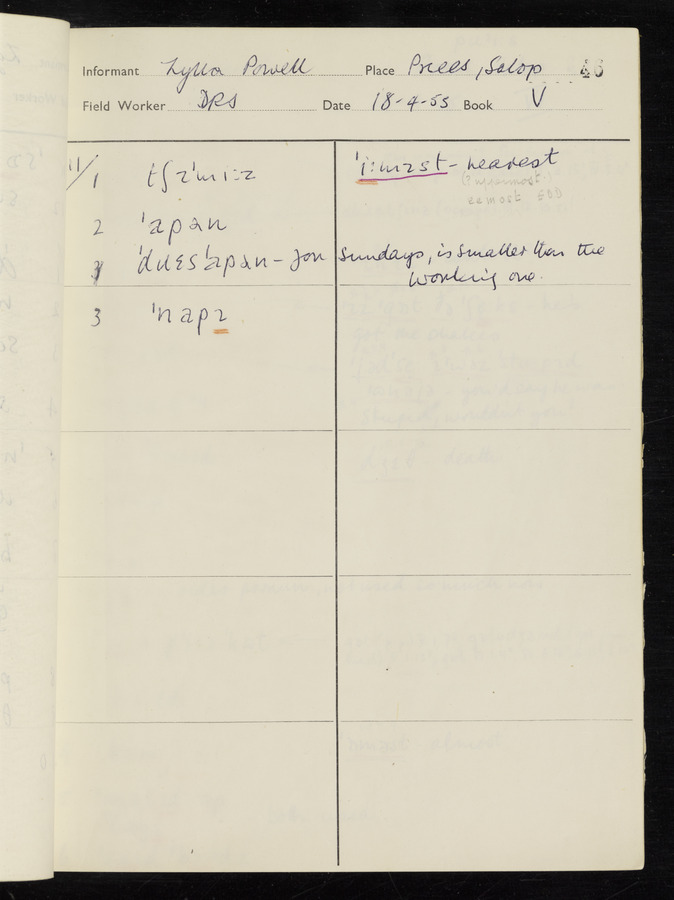 Informant Zylla Powell Place Prees, Salop 46
Field Worker DRS Date 18-4-55 Book V
11/1 tʃəˈmiːz ˈiːməst - nearest
2 ˈapən
ˈdɪɛsˈapən - for Sundays, is smaller than the
working one.
3 ˈnapɪ